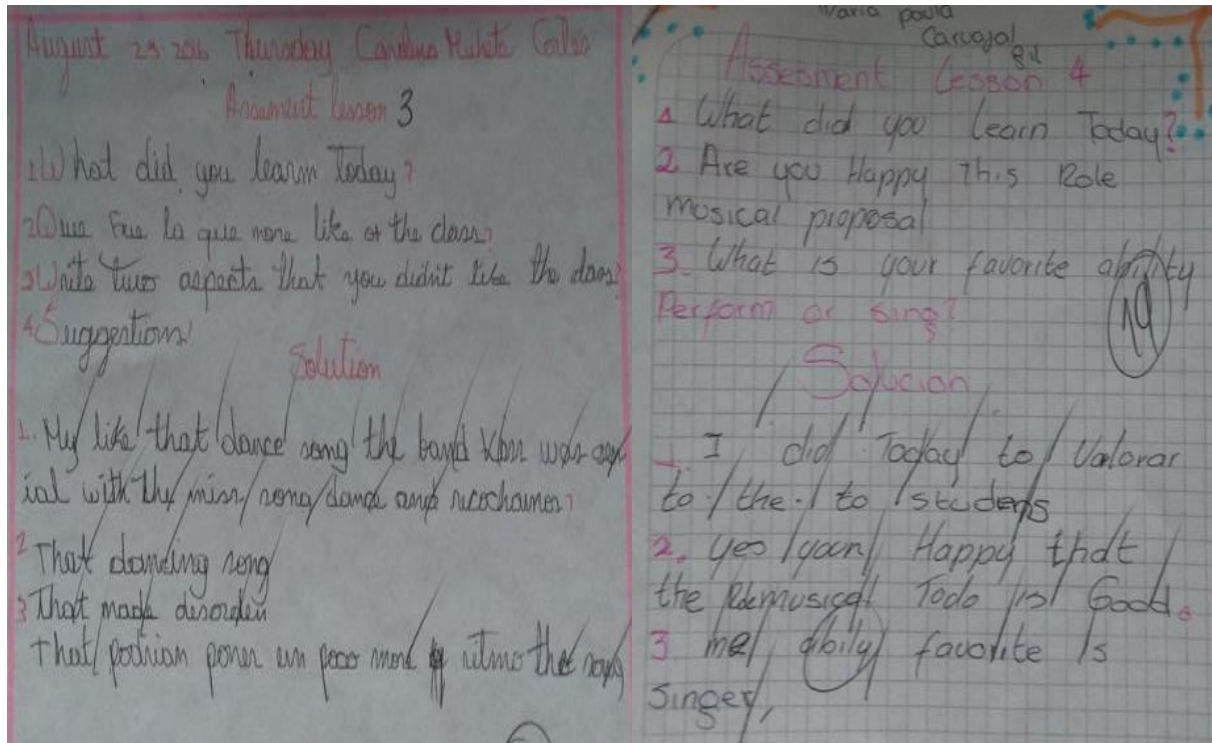 August 25 2016 Thursday Carolina
Assament lesson 3
1. What did you learn Today?
2 Que Fue la que more like of the class?
3 Write two aspects that you didn't like the class?
4 Suggestions!
Solution
1. My like that dance song the band was
ial with the miss song dance and
2 That dancing song
3 That made disorden
that podrian poner un poco more ritmo the song
Maria paula
Carvajal
gil
Assesment Lesson 4
1 What did you learn Today?
2 Are you Happy This Role
musical proposal
3. What is your favorite ability
Perform or sing?
19
Solucion
1. I did Today to Valorar
to the to students
2. yes your Happy that
the Rolemusical Todo is Good.
3 me abily favorite Is
Singer,